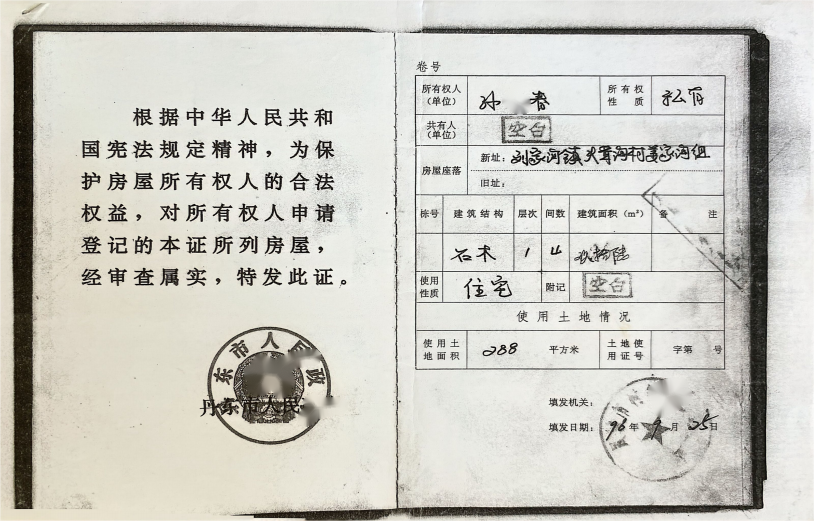 根据中华人民共和
国宪法规定精神，为保
护房屋所有权人的合法
权益，对所有权人申请
登记的本证所列房屋，
经审查属实，特发此证。
东市人民政
丹东市人民
卷号
所有权人（单位） 孙 春 所有权性质 私有
共有人（单位） 空白
房屋座落 新址：刘家河镇 沟村姜家沟组
旧址：
栋号 建筑结构 层次 间数 建筑面积（m²） 备注
石木 1 4 玖拾陆
使用性质 住宅 附记 空白
使用土地情况
使用土地面积 288 平方米 土地使用证号 字第 号
填发机关：
填发日期：96年9月25日